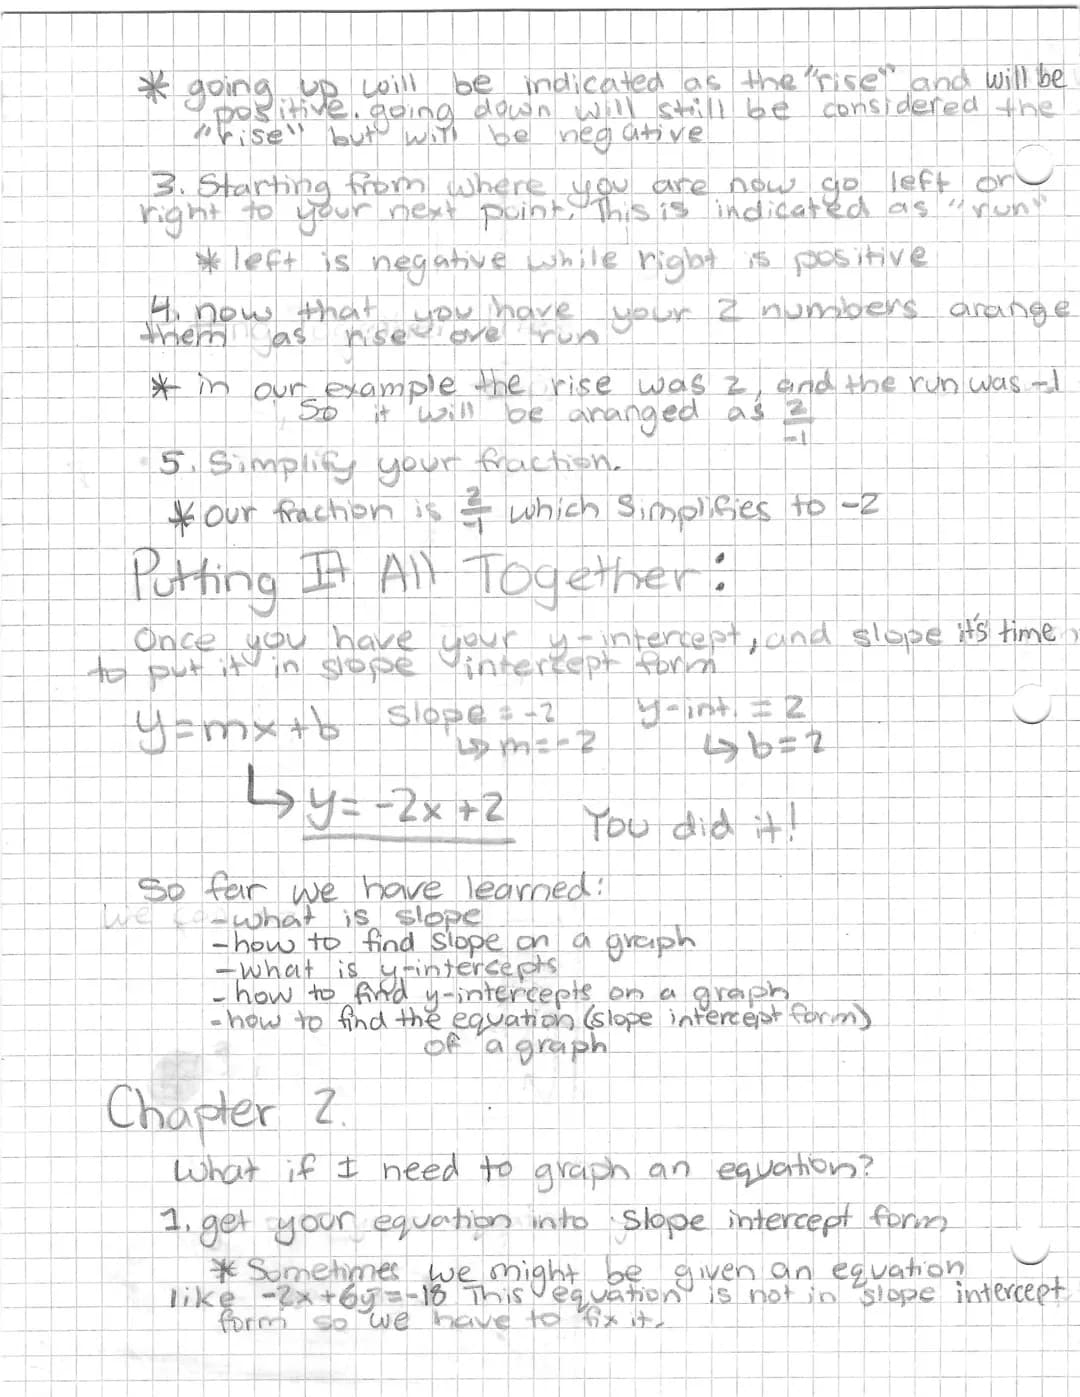 * going up will be indicated as the "rise" and will be
positive. going down will still be considered the
"rise" but will be negative
3. Starting from where you are now go left or
right to your next point, This is indicated as "run"
* left is negative while right is positive
4. now that you have your 2 numbers arange
them as rise ove run
* in our example the rise was 2, and the run was -1
So it will be aranged as 2/-1
5. Simplify your fraction.
* our fraction is 2/-1 which Simplifies to -2
Putting It All Together:
Once you have your y-intercept, and slope it's time
to put it in slope intercept form
y=mx+b slope = -2 y-int. = 2
↳ m=-2 ↳ b=2
↳ y=-2x+2 You did it!
So far we have learned:
-what is slope
-how to find slope on a graph
-what is y-intercepts
-how to find y-intercepts on a graph
-how to find the equation (slope intercept form)
of a graph
Chapter 2.
What if I need to graph an equation?
1. get your equation into Slope intercept form
* Sometimes we might be given an equation
like -2x+6y=-18 This equation is not in slope intercept
form so we have to fix it.